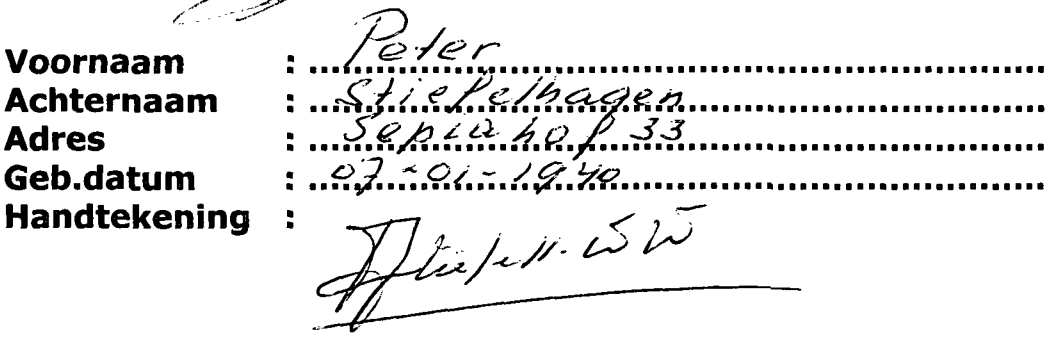 Voornaam : Peter
Achternaam : Stiefelhagen
Adres : Sepiahof 33
Geb.datum : 07-01-1940
Handtekening :